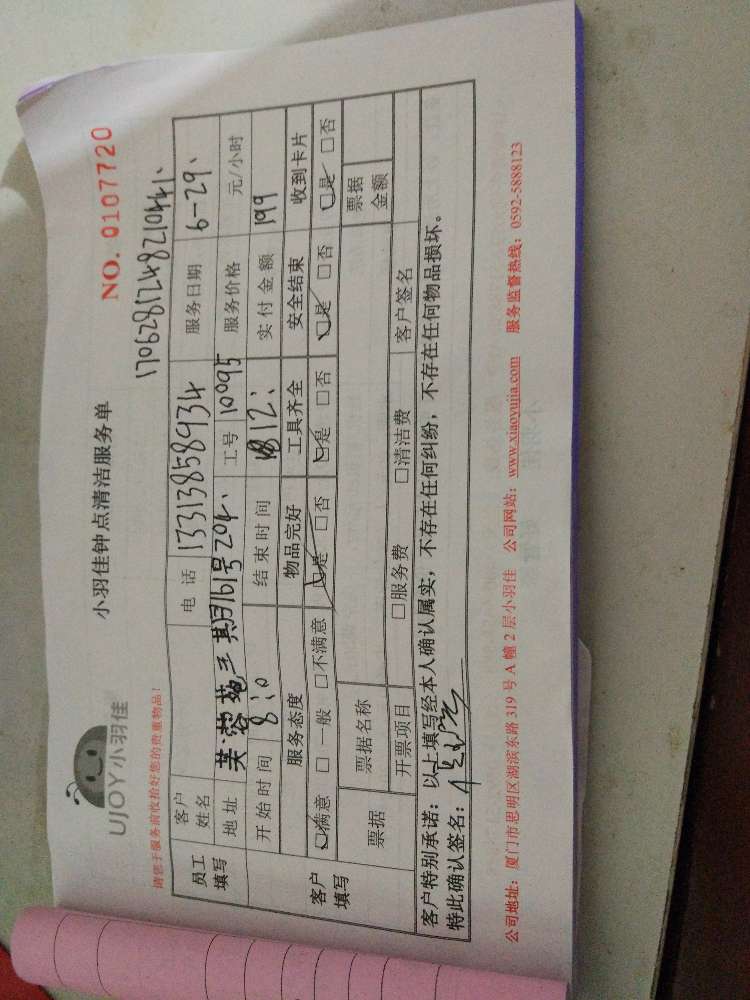 UJOY小羽佳
小羽佳钟点清洁服务单
NO. 0107720
请您于服务前收拾好您的贵重物品!
1706281248210441
员工填写 客户姓名 电话 13313858934 服务日期 6-29、
地址 芙蓉苑三期161号204、 工号 10095 服务价格 元/小时
开始时间 8:10 结束时间 12: 实付金额 199
客户填写 服务态度 物品完好 工具齐全 安全结束 收到卡片
☑满意 □一般 □不满意 ☑是 □否 ☑是 □否 ☑是 □否 ☑是 □否
票据 票据名称 票据金额
开票项目 □服务费 □清洁费 客户签名
客户特别承诺:以上填写经本人确认属实,不存在任何纠纷,不存在任何物品损坏。
特此确认签名:
公司地址:厦门市思明区湖滨东路 319 号 A 幢 2 层小羽佳 公司网站:www.xiaoyujia.com 服务监督热线:0592-5888123